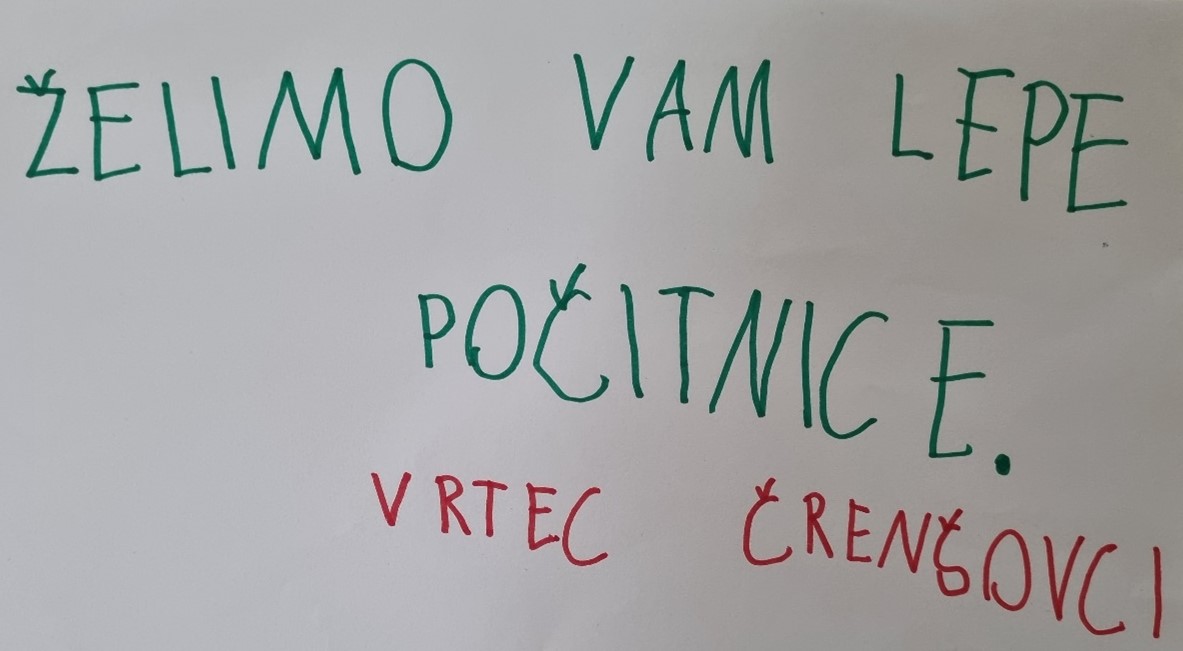 ŽELIMO VAM LEPE
POČITNICE.
VRTEC ČRENŠOVCI